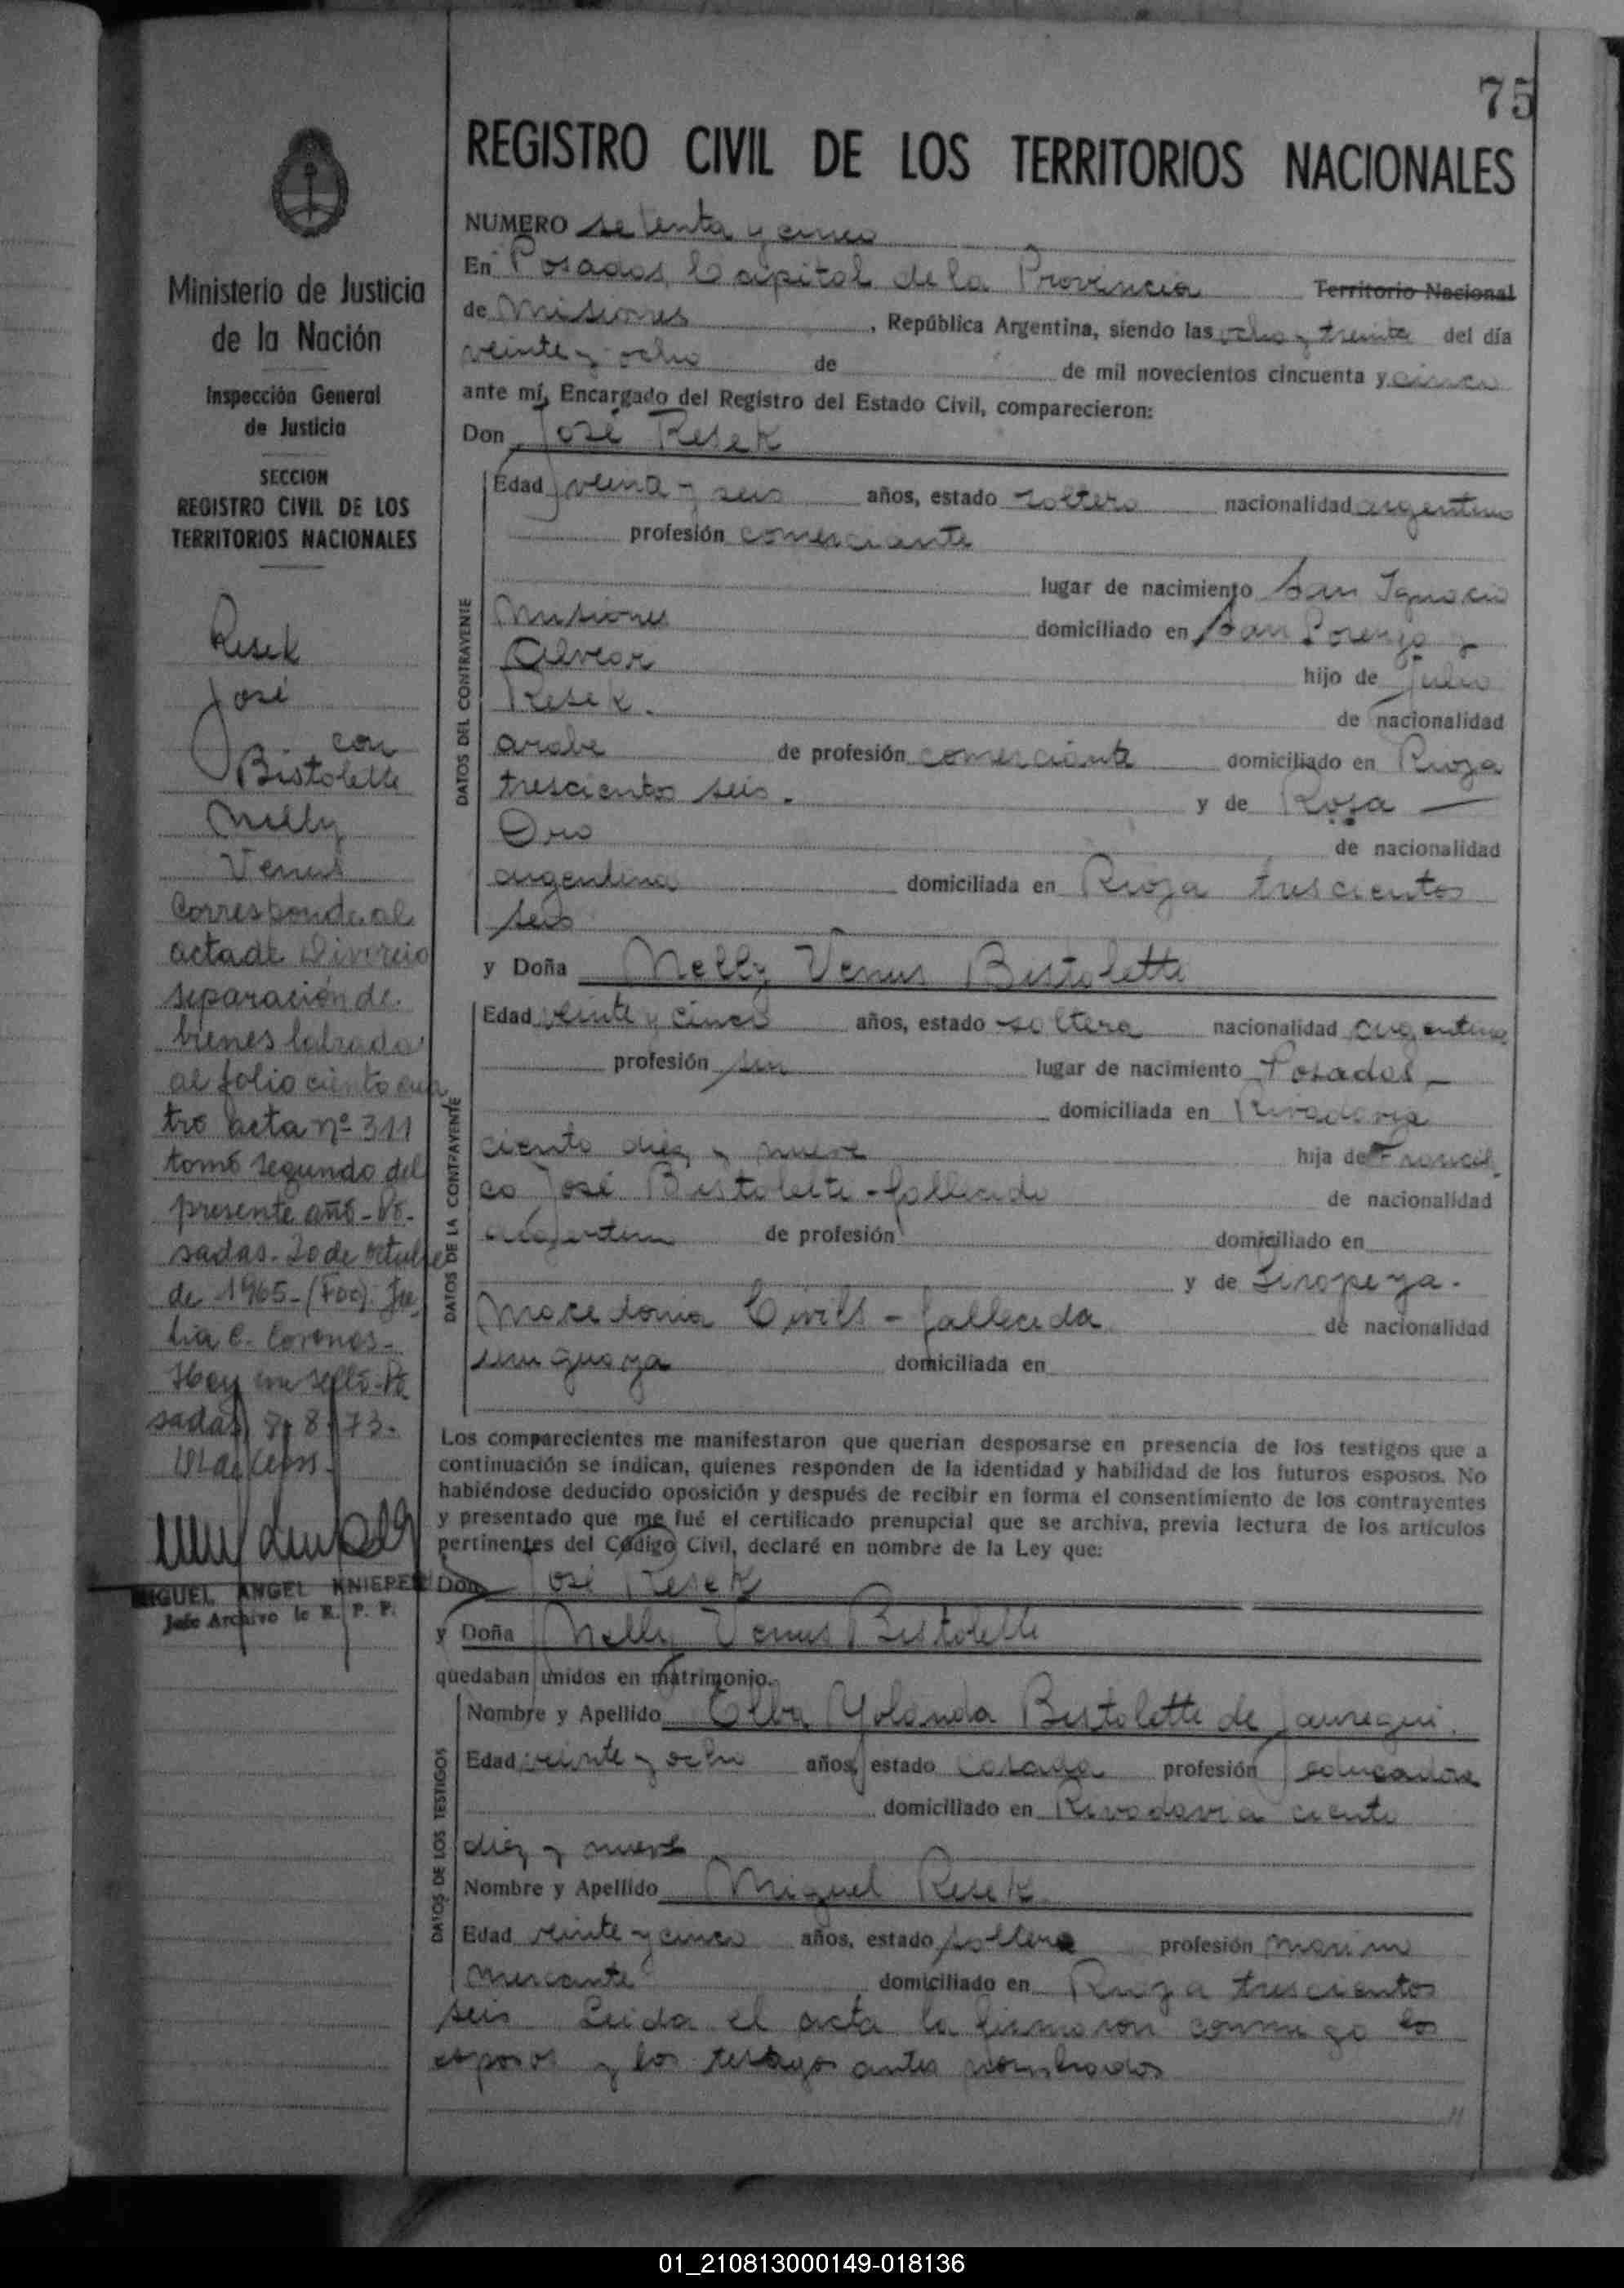 75
REGISTRO CIVIL DE LOS TERRITORIOS NACIONALES
Ministerio de Justicia
de la Nación
Inspección General
de Justicia
SECCION
REGISTRO CIVIL DE LOS
TERRITORIOS NACIONALES
Resek
José
con
Bistolette
Nelly
Venus
Corresponde al
acta de Divorcio
separación de
bienes labrada
al folio ciento cua
tro acta nº 311
tomo segundo del
presente año - Po-
sadas - 20 de octubre
de 1965 -
Hay un sello - Po
sadas, 8-73-
MIGUEL ANGEL KNIEPER
Jefe Archivo de R. P. P.
NUMERO setenta y cinco
En Posadas, Capital de la Provincia Territorio Nacional
de Misiones, República Argentina, siendo las ocho y treinta del día
veinte y ocho de de mil novecientos cincuenta y cinco
ante mí, Encargado del Registro del Estado Civil, comparecieron:
Don José Resek
DATOS DEL CONTRAYENTE
Edad y seis años, estado soltero nacionalidad argentino
profesión comerciante
lugar de nacimiento San Ignacio
Misiones domiciliado en San Lorenzo y
Alvear hijo de Julio
Resek. de nacionalidad
arabe de profesión comerciante domiciliado en Rioja
trescientos seis. y de Rosa —
Oro de nacionalidad
argentina domiciliada en Rioja trescientos
seis
y Doña Nelly Venus Bistolette
DATOS DE LA CONTRAYENTE
Edad veinte y cinco años, estado soltera nacionalidad argentina
profesión sin lugar de nacimiento Posadas -
domiciliada en Rivadavia
ciento diez y nueve hija de Francis
co José Bistolette - fallecido de nacionalidad
argentino de profesión domiciliado en
y de
Macedonia - fallecida de nacionalidad
uruguaya domiciliada en
Los comparecientes me manifestaron que querían desposarse en presencia de los testigos que a
continuación se indican, quienes responden de la identidad y habilidad de los futuros esposos. No
habiéndose deducido oposición y después de recibir en forma el consentimiento de los contrayentes
y presentado que me fué el certificado prenupcial que se archiva, previa lectura de los artículos
pertinentes del Código Civil, declaré en nombre de la Ley que:
Don José Resek
y Doña Nelly Venus Bistolette
quedaban unidos en matrimonio.
DATOS DE LOS TESTIGOS
Nombre y Apellido Elba Yolanda Bistolette de Jauregui.
Edad veinte y ocho años, estado casada profesión educadora
domiciliado en Rivadavia ciento
diez y nueve
Nombre y Apellido Miguel Resek
Edad veinte y cinco años, estado soltero profesión marino
mercante domiciliado en Rioja trescientos
seis Leida el acta la firmaron conmigo los
esposos y los testigos antes nombrados
01_210813000149-018136